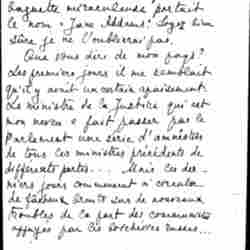 baguette miraculeuse portait
le nom "Jane Addams! Soyez bien
sûre je ne l'oublierai pas.
Que vous dire de mon pays?
Les premiers jours il me semblait
qu'il y avait un certain apaisement.
Le ministre de la Justice qui est
mon neveu a fait passer par le
Parlement une série d'amnisties
de tous les ministres précédents de
différents partis... Mais ces der-
niers jours commencent à circuler
de fâcheux bruits sur de nouveaux
troubles de la part des communistes
appuyés par les bolchevics russes...